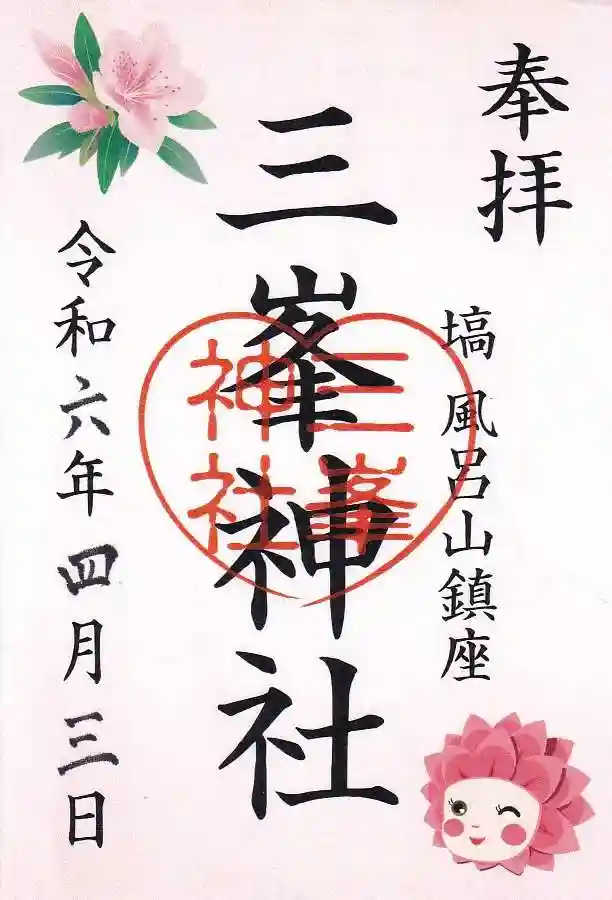 奉拝
塙 風呂山鎮座
三峯神社
三峯
神社
令和六年 四月 三日